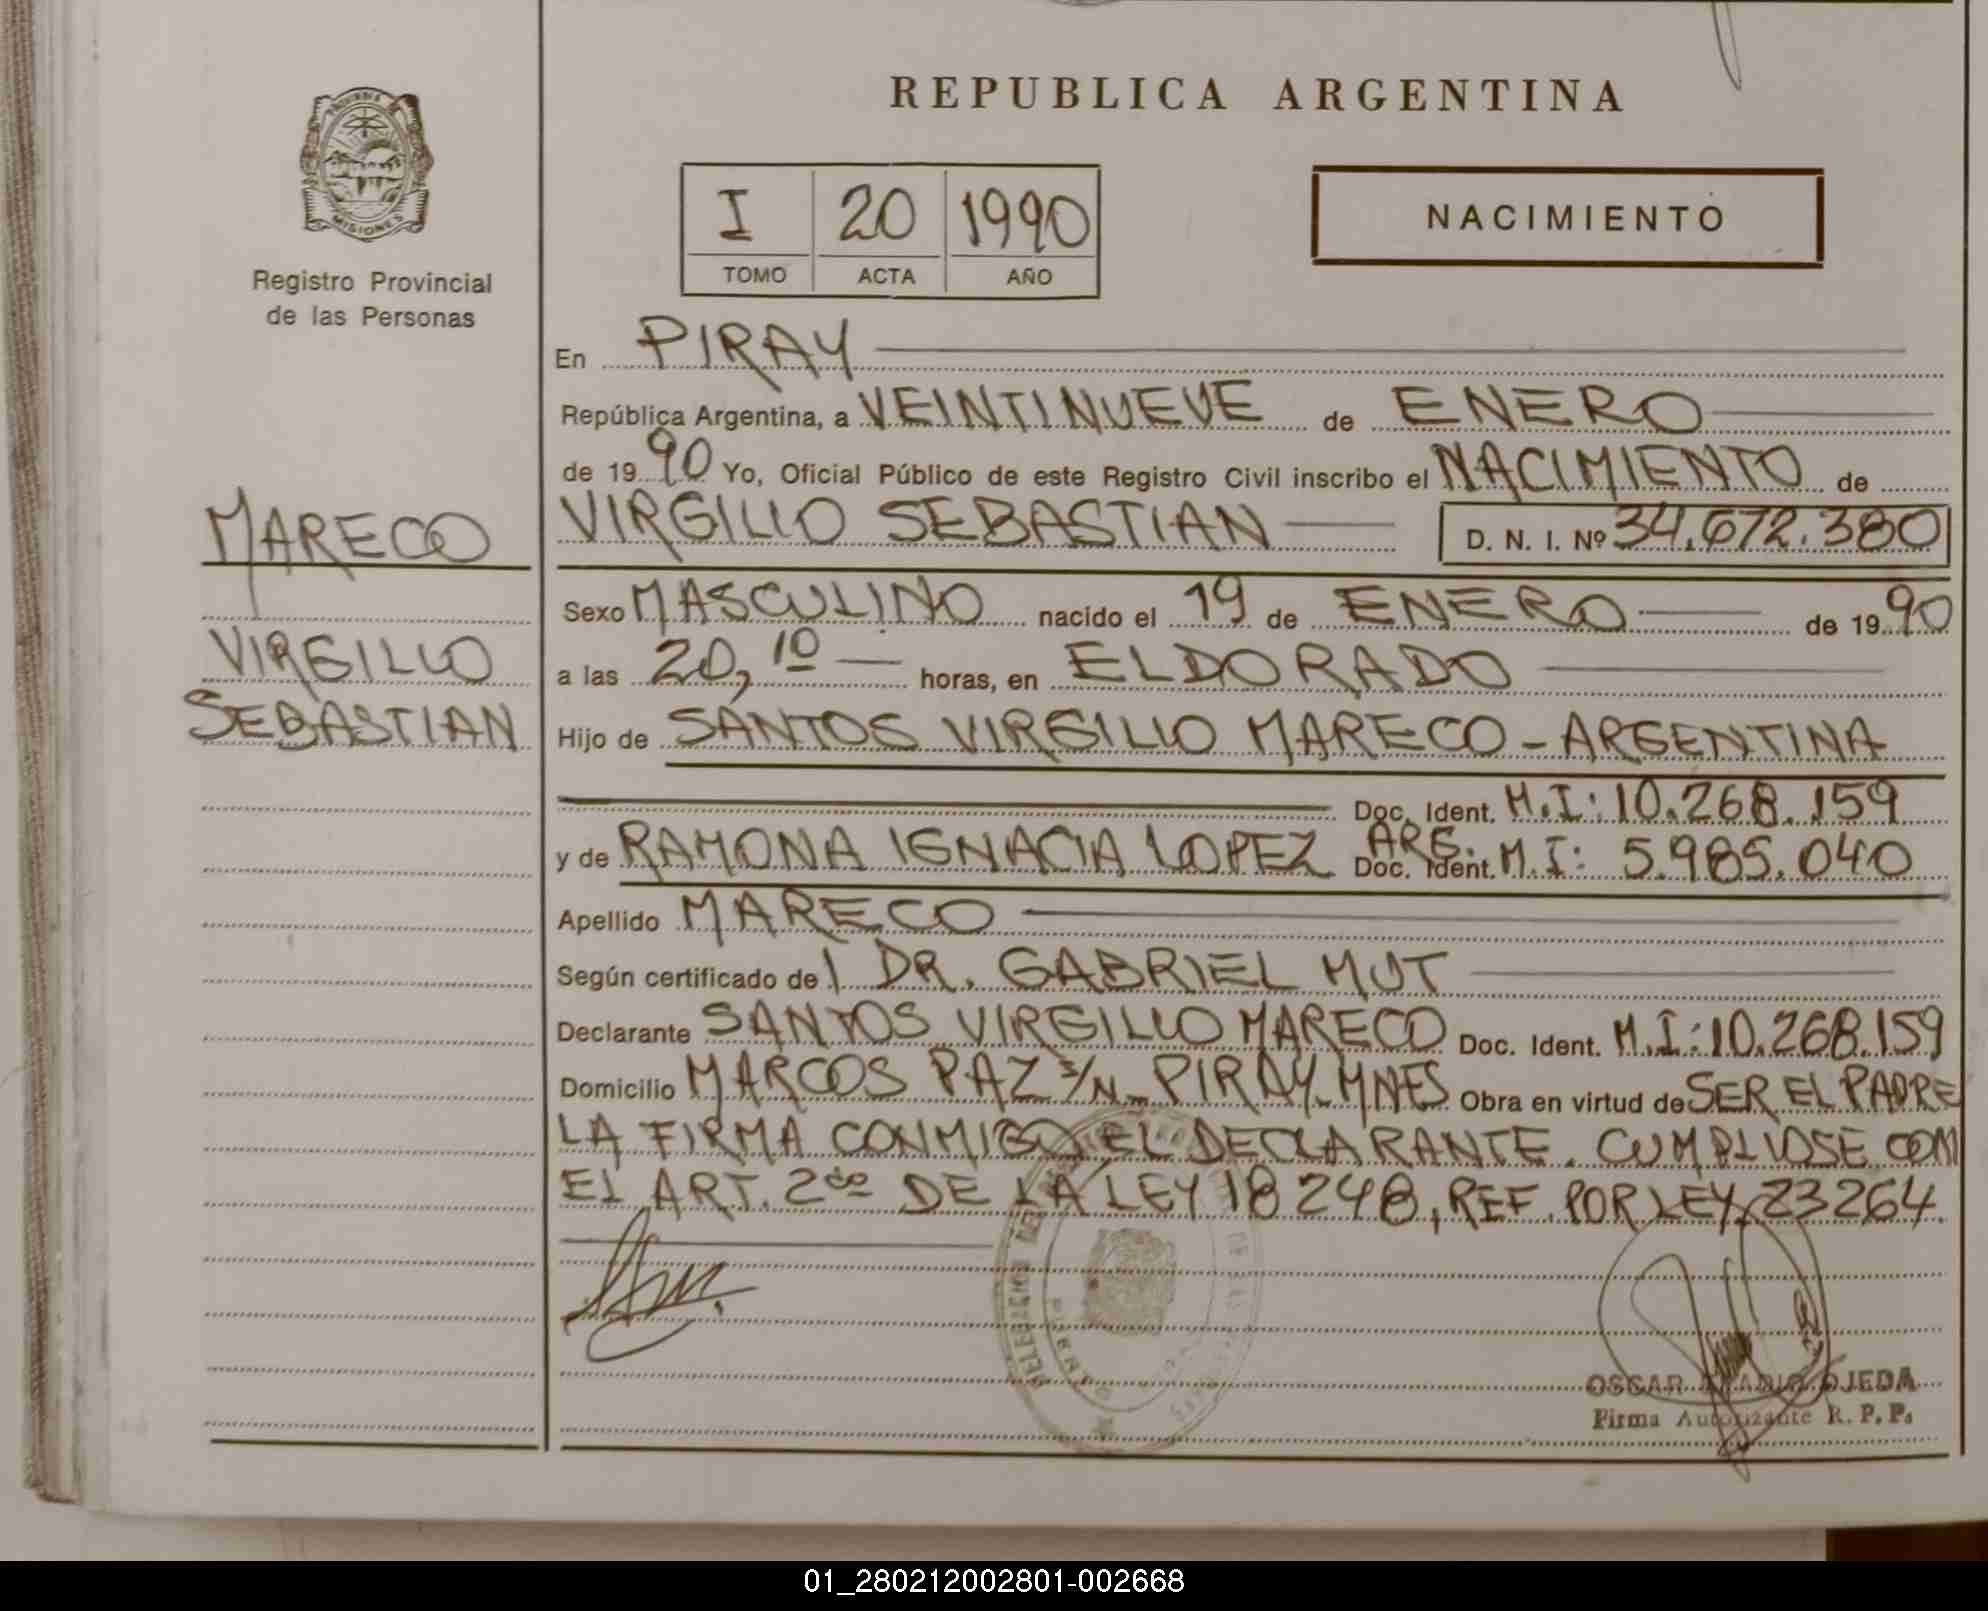 REPUBLICA ARGENTINA
MISIONES
Registro Provincial
de las Personas
I 20 1990
TOMO ACTA AÑO
NACIMIENTO
En PIRAY
República Argentina, a VEINTINUEVE de ENERO
de 1990 Yo, Oficial Público de este Registro Civil inscribo el NACIMIENTO de
MARECO
VIRGILIO SEBASTIAN D. N. I. Nº 34.672.380
Sexo MASCULINO nacido el 19 de ENERO de 1990
VIRGILIO
SEBASTIAN
a las 20,10 horas, en ELDORADO
Hijo de SANTOS VIRGILIO MARECO - ARGENTINA
Doc. Ident. M.I: 10.268.159
y de RAMONA IGNACIA LOPEZ ARG. Doc. Ident. M.I: 5.985.040
Apellido MARECO
Según certificado del DR. GABRIEL MUT
Declarante SANTOS VIRGILIO MARECO Doc. Ident. M.I: 10.268.159
Domicilio MARCOS PAZ S/N PIRAY. MNES Obra en virtud de SER EL PADRE
LA FIRMA CONMIGO EL DECLARANTE. CUMPLIOSE CON
EL ART. 2do DE LA LEY 18248, REF. POR LEY 23264.
OSCAR OJEDA
Firma Autorizante R. P. P.
01_280212002801-002668